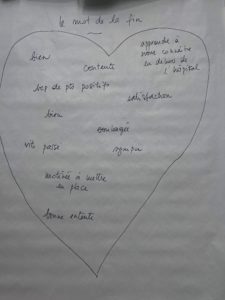 le mot de la fin
bien
contente
apprendre à
nous connaitre
en dehors de
l'hôpital
bcp de pts positifs
satisfaction
bien
soulagée
vite passé
sympa
motivée à mettre
en place
bonne entente